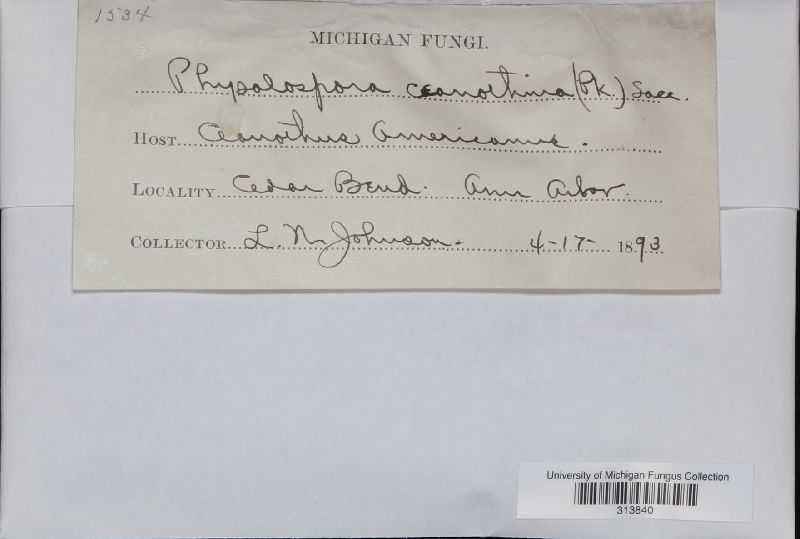 1534
MICHIGAN FUNGI.
Physalospora ceanothina (Pk.) Sacc.
HOST Ceanothus Americanus.
LOCALITY Cedar Bend. Ann Arbor.
COLLECTOR L. N. Johnson. 4-17- 1893
University of Michigan Fungus Collection
313840